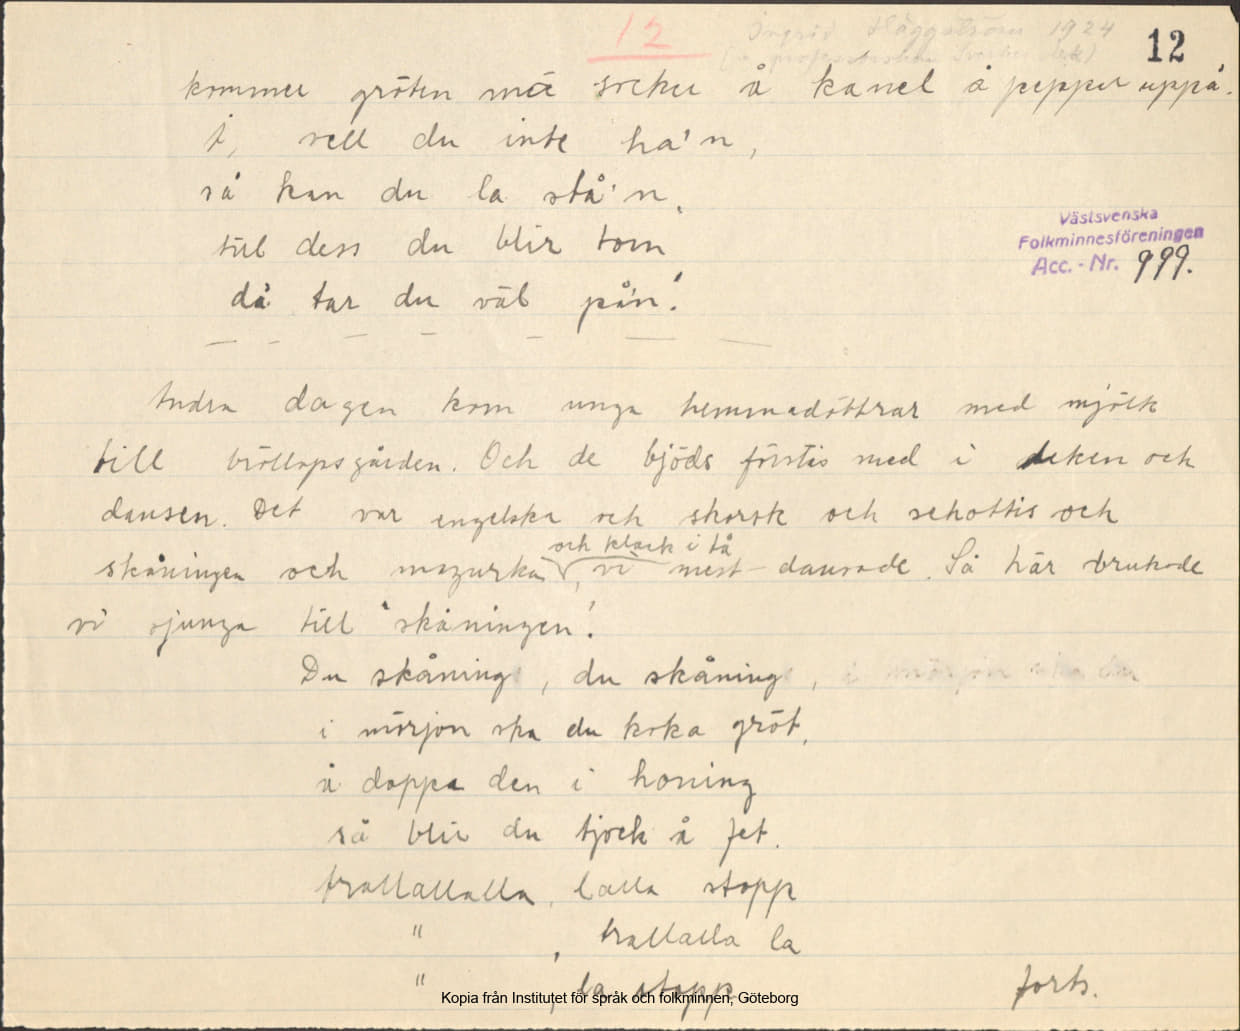 12
Ingrid Häggström 1924
12
kommer gröten mä socker å kanel å peppar uppå.
vell du inte ha'n,
så kan du la stå'n,
till dess du blir tom
då tar du väl på'n!
Västsvenska
Folkminnesföreningen
Acc.-Nr. 999.
Andra dagen kom unga hemmadöttrar med mjölk
till bröllopsgården. Och de bjöds förstås med i leken och
dansen. Det var engelska och skorsk och schottis och
och klack i tå
skåningen och mazurka, vi mest dansade. Så här brukade
vi sjunga till "skåningen!
Du skåning, du skåning,
i mörjon ska du koka gröt,
å doppa den i honing
så blir du tjock å fet.
trallallalla, lalla stopp
" , trallalla la
" , la stopp
forts.
Kopia från Institutet för språk och folkminnen, Göteborg